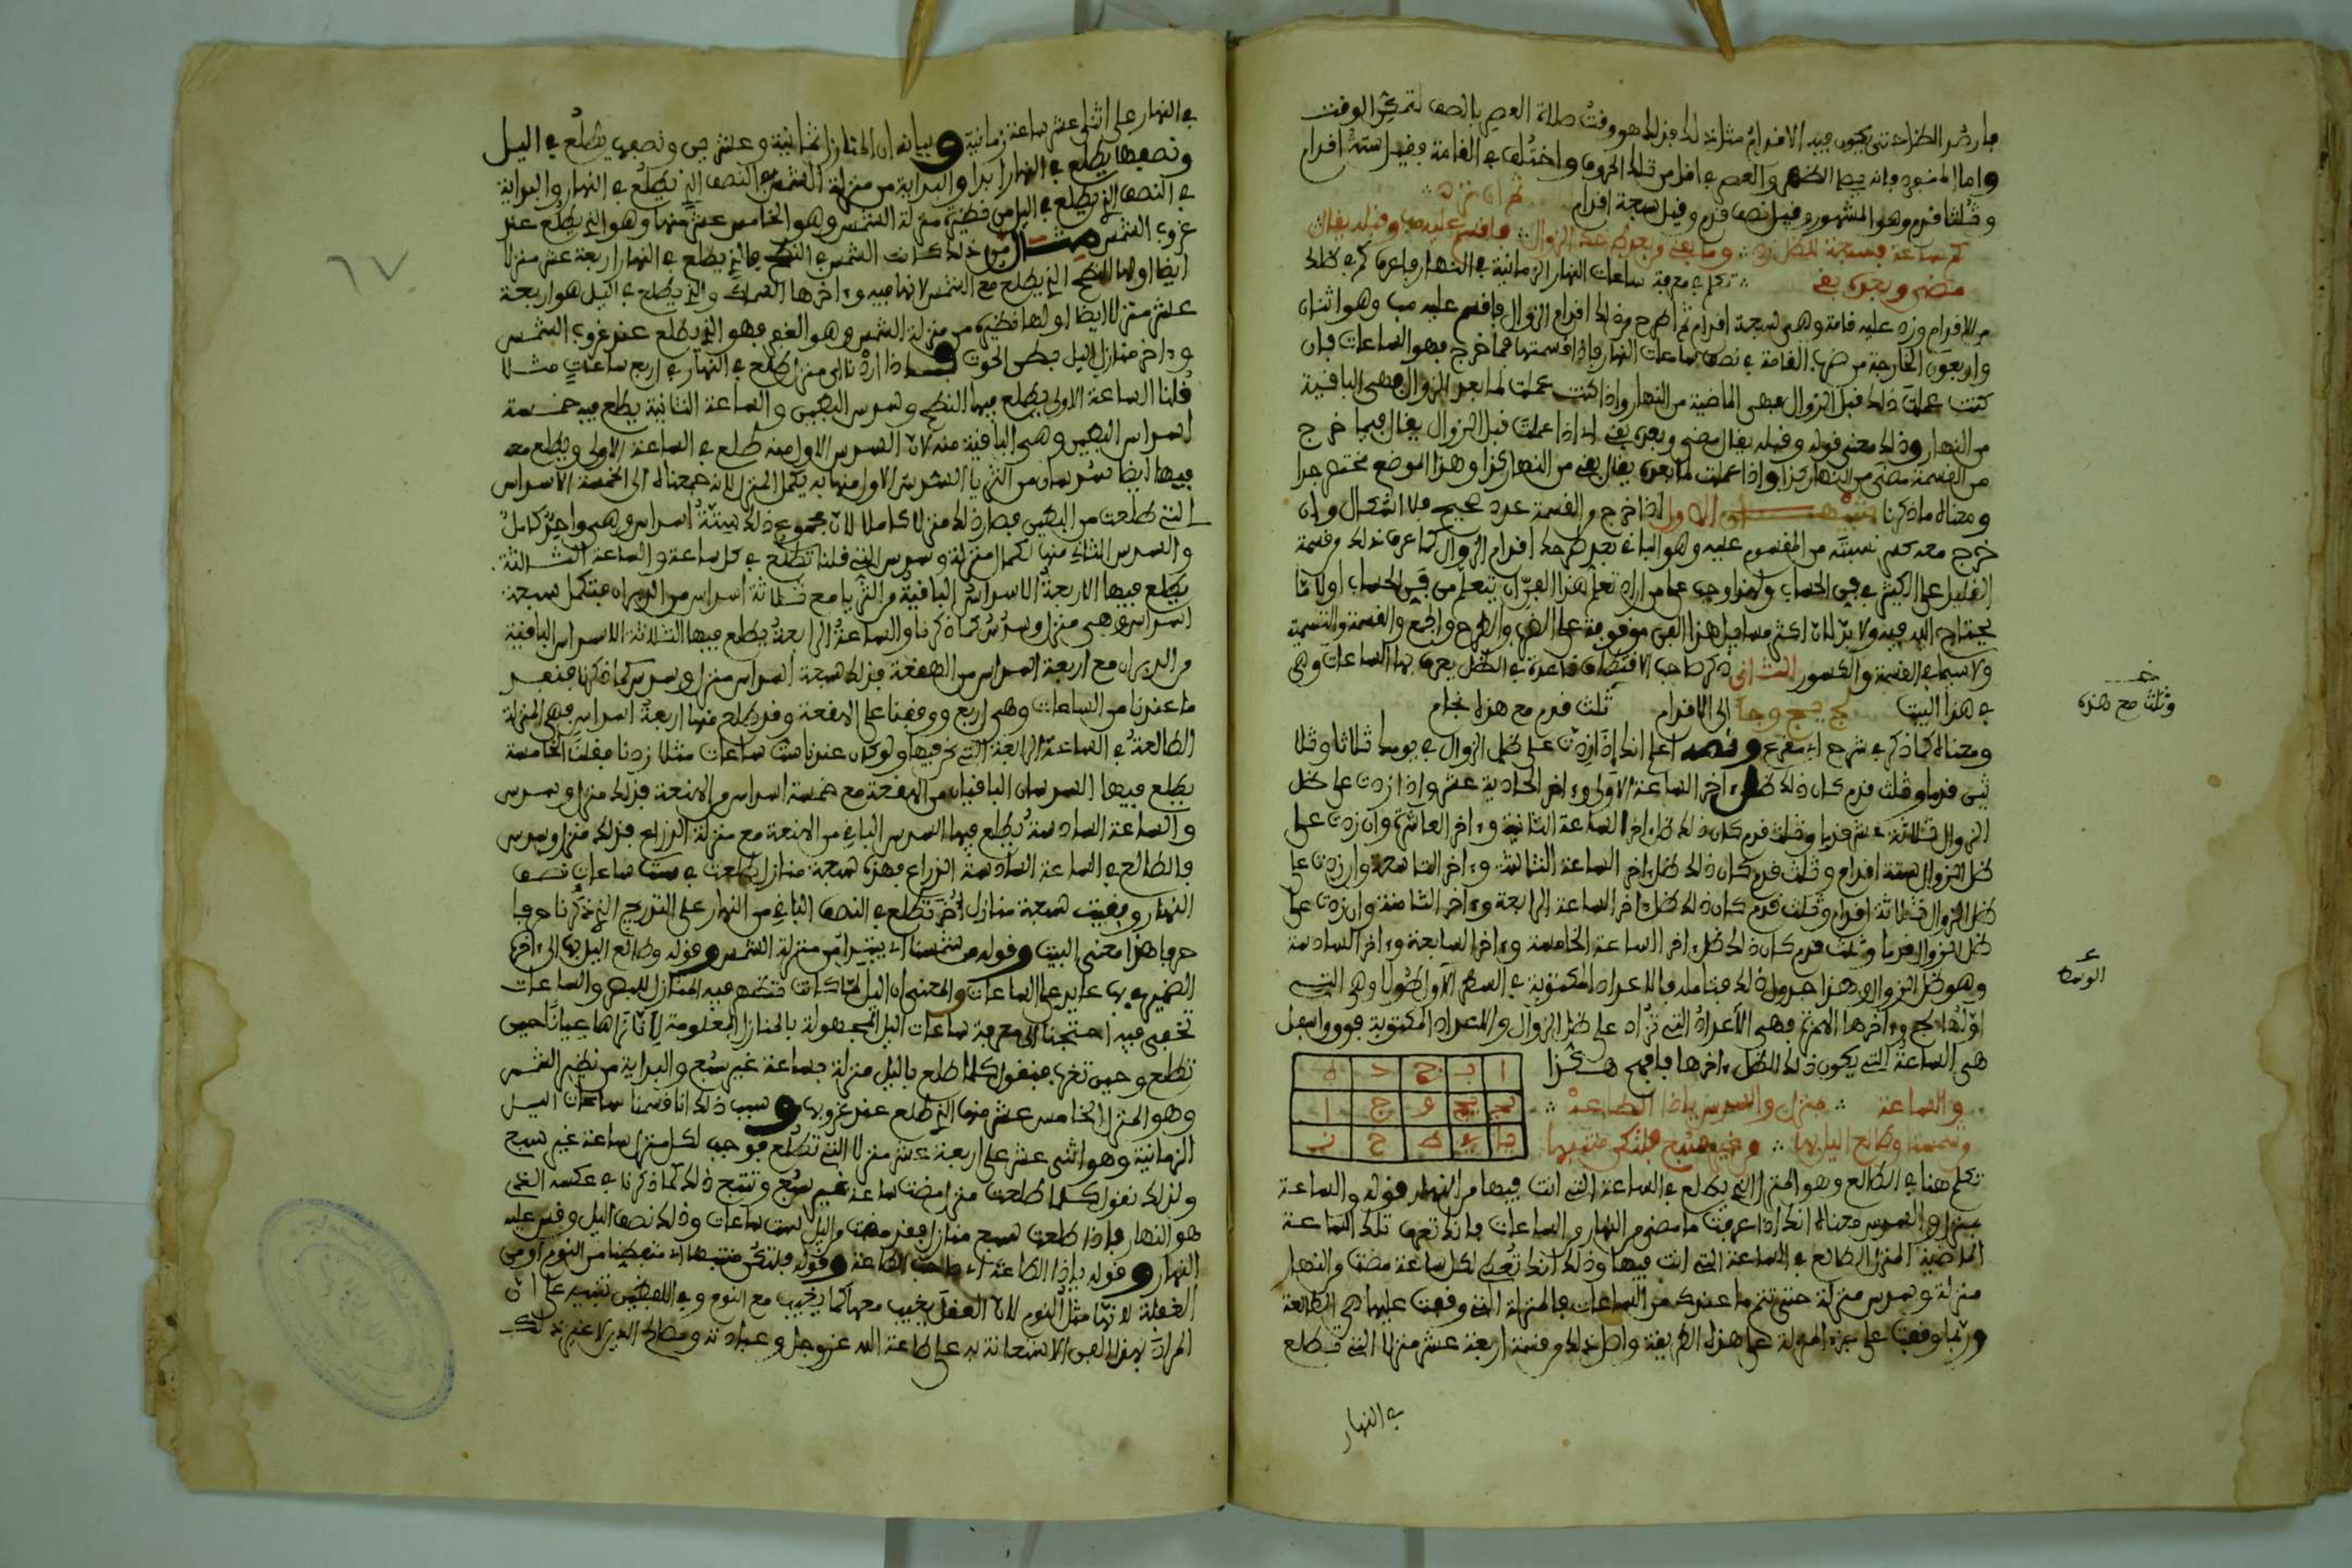 فارصد الظل حتى يكون فيه الاقدام مثل ذلك فذلك هو وقت صلاة العصر
واما المنفرد فانه يصلي الظهر والعصر في اقل من تلك الحروف واختلف في القامة فقيل ستة اقدام
وثلثا قدم وهو المشهور وقيل نصف قدم وقيل سبعة اقدام
كم ساعة فسبعة للظل زد وما بقي وبعد طرحك الزوال فاقسم عليه وقبله يقال
مضى وبعده بقي تكلم في معرفة ساعات النهار الزمانية في النهار فاعرف كم في ظلك
من الاقدام وزد عليه قامة وهي سبعة اقدام ثم اطرح من ذلك اقدام الزوال فاقسم عليه مب وهو اثنان
واربعون الخارجة من ضرب القامة في نصف ساعات النهار فاذا قسمتها فما خرج فهو الساعات فان
كنت عملت ذلك قبل الزوال فهي الماضية من النهار واذا كنت عملت لما بعد الزوال فهي الباقية
من النهار وذلك معنى قوله وقبله يقال مضى وبعده بقي اي اذا عملت قبل الزوال يقال فيما خرج
من القسمة مضى من النهار كذا واذا عملت لما بعده يقال بقي من النهار كذا وهذا الموضع مختصر جدا
ومعناه ما ذكرنا الاول اذا خرج من القسمة عدد صحيح فلا اشكال وان
خرج معه كسر نسبته من المقسوم عليه وهو الباقي بعد طرحك اقدام الزوال كما عرف ذلك من قسمة
القليل على الكثير في فن الحساب ولهذا وجب على من اراد تعلم هذا الفن ان يتعلم من فن الحساب اولا ما
يحتاج اليه فيه ولا بد لان اكثر مسائل هذا الفن موقوفة على الضرب والطرح والجمع والقسمة والتسمية
ولا سيما في القسمة والكسور الثاني ذكر صاحب الاقتطاف قاعدة في الظل يعرف بها الساعات وهي
في هذا البيت لج يج وجا الى الاقدام ثلث قدم مع هذا نجام
ومعناه كما ذكر في شرح ابي مقرع ونصه اعلم انك اذا زدت على ظل الزوال في يومك ثلاثا وثلا
ثين قدما وثلث قدم كان ذلك ظل اخر الساعة الاولى واخر الحادية عشر واذا زدت على ظل
الزوال ثلاثة عشر قدما وثلث قدم كان ذلك ظل اخر الساعة الثانية واخر العاشرة وان زدت على
ظل الزوال ستة اقدام وثلث قدم كان ذلك ظل اخر الساعة الثالثة واخر التاسعة وان زدت على
ظل الزوال ثلاثة اقدام وثلث قدم كان ذلك ظل اخر الساعة الرابعة واخر الثامنة وان زدت على
ظل الزوال قدما وثلث قدم كان ذلك ظل اخر الساعة الخامسة واخر السابعة واخر السادسة
وهو ظل الزوال وهذا جدول ذلك فتامله فالاعداد المكتوبة في السطر الاول طولا وهي التي
اولها لج واخرها الامن فهي الاعداد التي تزاد على ظل الزوال والاعداد المكتوبة فوق واسفل
هي الساعة التي يكون ذلك الظل اخرها فافهم هكذا
ا ب ج د ه
لج يج و ج ا
يا ي ط ح ز
والساعة منزل والسدس ياذا الطاعة
وشمسنا وطالع الليل بها من غير سبع فلتكن منتبها
تكلم هنا في الطالع وهو المنزل الذي يطلع في الساعة التي انت فيها من النهار قوله والساعة
منزل والسدس معناه انك اذا عرفت ما مضى من النهار من الساعات فانك تعرف تلك الساعة
الماضية المنزل الطالع في الساعة التي انت فيها وذلك انك تعطي لكل ساعة مضت من النهار
منزلة وسدس منزلة حتى تتم ما عندك من الساعات فالمنزلة التي وقفت عليها هي الطالعة
وربما وقفت على جزء المنزلة على هذه الطريقة واصل ذلك من قسمة اربعة عشر منزلا التي تطلع
في النهار
وثلث مع هذه
الوسط
٦٧
في النهار على اثنى عشر ساعة زمانية وبيانه ان المنازل ثمانية وعشرين ونصفهن يطلع في اليل
ونصفها يطلع في النهار ابدا والبداية من منزلة الشمس في النصف الذي يطلع في النهار والبداية
في النصف الذي يطلع في اليل من نظيرة منزلة الشمس وهو الخامس عشر منها وهو الذي يطلع عند
غروب الشمس مثال من ذلك كانت الشمس في النطح فالذي يطلع في النهار اربعة عشر منزلا
ايضا اولها النطح الذي يطلع مع الشمس لانها فيه واخرها السماك والذي يطلع في اليل هو اربعة
عشر منزلا ايضا اولها نظيرة من منزلة الشمس وهو الغفر فهو الذي يطلع عند غروب الشمس
واخر منازل اليل بطن الحوت فاذا اردنا اي منزل طلع في النهار في اربع ساعات مثلا
قلنا الساعة الاولى يطلع فيها النطح وسدس البطين والساعة الثانية يطلع فيه خمسة
اسداس البطين وهي الباقية منه لان السدس الاول منه طلع في الساعة الاولى ويطلع معه
فيها ايضا سدسان من الثريا السدس الاول منها به يكمل المنزل لانه جمعناه الى الخمسة الاسداس
التي طلعت من البطين فصار ذلك منزلا كاملا لان مجموع ذلك ستة اسداس وهي واحد كامل
والسدس الثاني منها لكمال منزلة وسدس التي قلنا تطلع في كل ساعة والساعة الثالثة
يطلع فيها الاربعة الاسداس الباقية من الثريا مع ثلاثة اسداس من الدبران فتكمل سبعة
اسداس وهي منزل وسدس كما ذكرنا والساعة الرابعة يطلع فيها الثلاثة الاسداس الباقية
من الدبران مع اربعة اسداس من الهقعة فذلك سبعة اسداس منزل وسدس كما ذكرنا فنفد
ما عندنا من الساعات وهي اربع ووقفنا على الهقعة وقد طلع منها اربعة اسداس فهي المنزلة
الطالعة في الساعة الرابعة التي نحن فيها ولو كان عندنا ست ساعات مثلا زدنا فقلنا الخامسة
يطلع فيها السدسان الباقيان من الهقعة مع خمسة اسداس من الهنعة فذلك منزل وسدس
والساعة السادسة يطلع فيها السدس الباقي من الهنعة مع منزلة الذراع فذلك منزل وسدس
فالطالع في الساعة السادسة الذراع فهذه سبعة منازل طلعت في ست ساعات نصف
النهار وبقيت سبعة منازل اخر تطلع في النصف الباقي من النهار على التدريج الذي ذكرنا حرفا
حرفا هذا معنى البيت وقوله من شمسنا اي يبتدا من منزلة الشمس وقوله وطالع اليل بها الى اخره
الضمير في بها عايد على الساعات والمعنى ان اليل لما كانت تظهر فيه المنازل للبصر والساعات
تخفى فيه احتجنا الى معرفة ساعات اليل المجهولة بالمنازل المعلومة لانا نراها عيانا حين
تطلع وحين تغرب فنقول كلما طلع باليل منزلة بساعة غير سبع والبداية من نظير الشمس
وهو المنزل الخامس عشر منها الذي طلع عند غروبها وسبب ذلك انا قسمنا ساعات اليل
الزمانية وهو اثنى عشر على اربعة عشر منزلا التي تطلع فوجب لكل منزل ساعة غير سبع
ولذلك نقول كلما طلعت منزل مضت ساعة غير سبع وتتبع ذلك كما ذكرنا في عكسه الذي
هو النهار فاذا طلعت سبع منازل فقد مضت من اليل ست ساعات وذلك نصف اليل وقس عليه
النهار وقوله ياذا الطاعة اي صاحب الطاعة وقوله فلتكن منتبها اي متيقظا من النوم او من
الغفلة لانها مثل النوم لان العقل يغيب معها كما يغيب مع النوم وفي اللفظين تنبيه على ان
المراد بهذا الفن الاستعانة به على طاعة الله عز وجل وعبادته ومصالح الدين لا غير ذلك